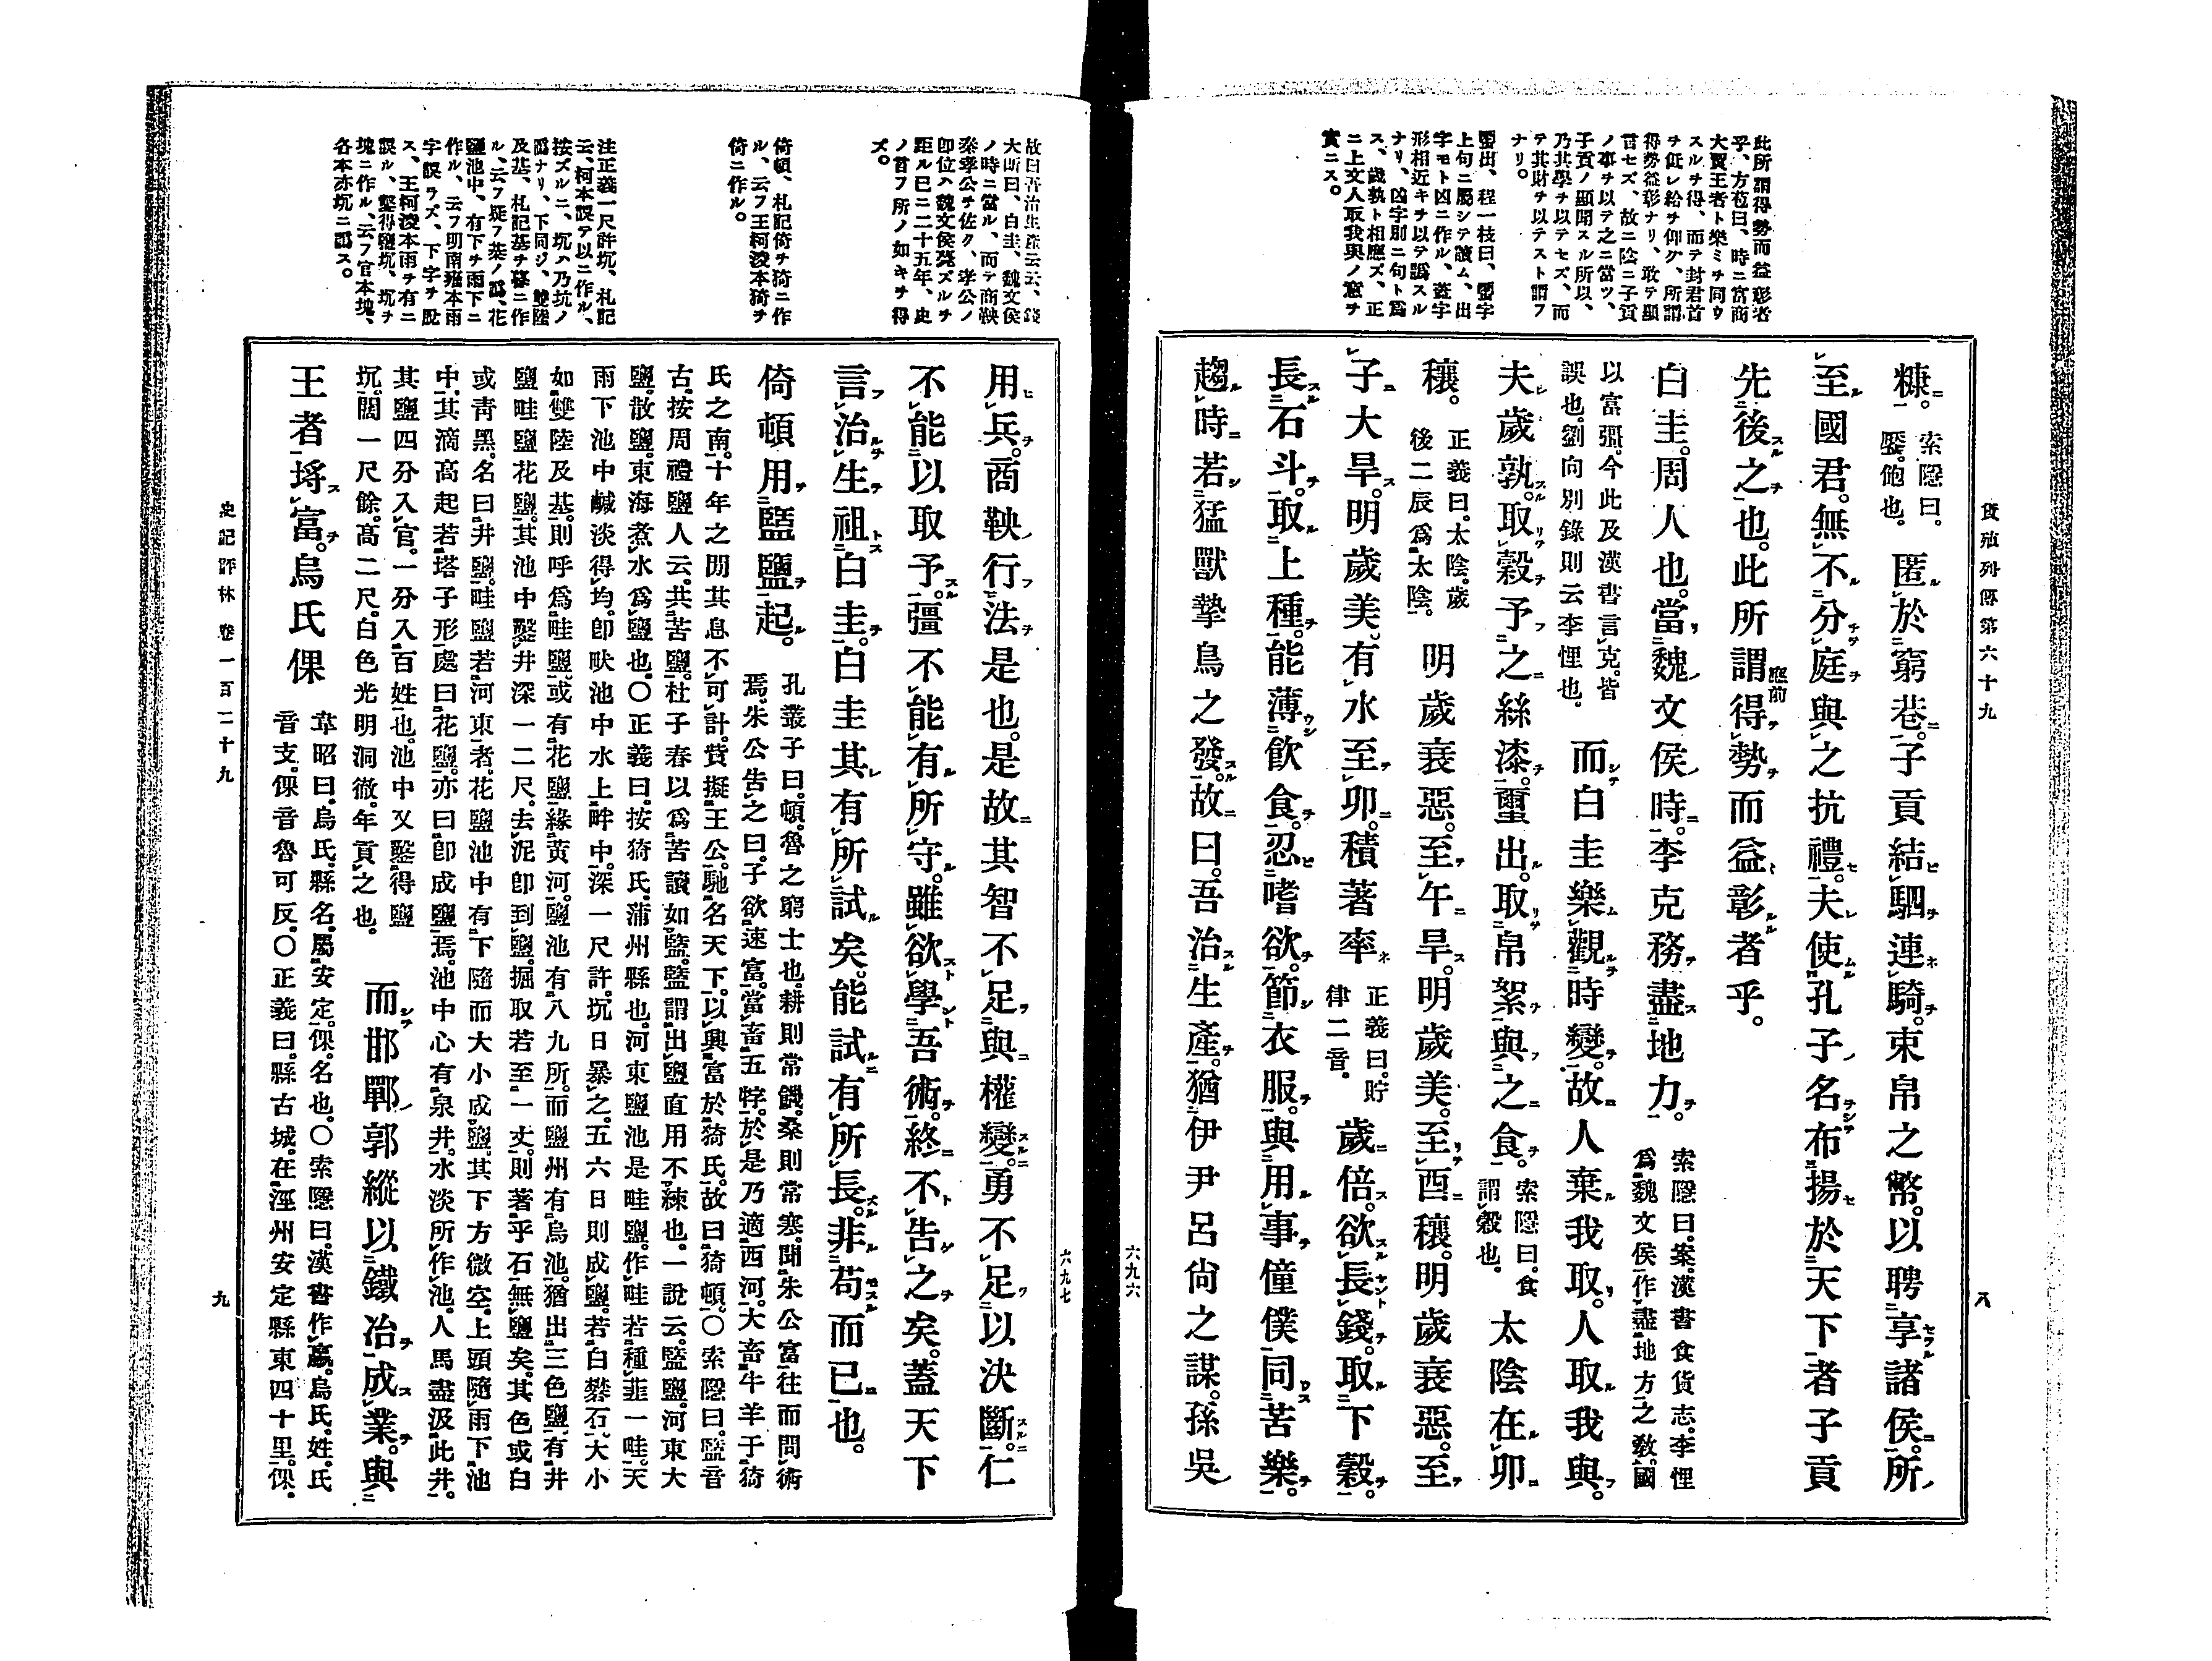 貨殖列傳第六十九
八
六九六
此所謂得勢而益彰者
乎、方苞曰、時ニ富商
大賈王者ト樂ミチ同ウ
スルチ得、而テ封君首
チ低レ給チ仰グ、所謂
得勢益彰ナリ、敢テ顯
言セズ、故ニ陰ニ子貢
ノ事チ以テ之ニ當ツ、
子貢ノ顯聞スル所以、
乃其學チ以テセズ、而
テ其財チ以テスト謂フ
ナリ。
璽出、程一枝曰、璽字
上句ニ屬シテ讀ム、出
字モト凶ニ作ル、蓋字
形相近キチ以テ譌スル
ナリ、凶字別ニ句ト爲
ス、歲孰ト相應ズ、正
ニ上文人取我與ノ意チ
實ニス。
糠。索隱曰。饜。飽也。匿於窮巷。子貢結駟連騎。束帛之幣。以聘享諸侯。所
至國君。無不分庭與之抗禮。夫使孔子名布揚於天下者子貢
先後之也。此所謂得勢而益彰者乎。應前
白圭。周人也。當魏文侯時。李克務盡地力。索隱曰。案。漢書食貨志。李悝爲魏文侯作盡地方之敎。國
以富彊。今此及漢書言克。皆誤也。劉向別錄則云李悝也。而白圭樂觀時變。故人棄我取。人取我與。
夫歲孰。取穀予之絲漆。璽出。取帛絮與之食。索隱曰。食謂穀也。太陰在卯
穰。正義曰。太陰。歲後二辰爲太陰。明歲衰惡。至午旱。明歲美。至酉穰。明歲衰惡。至
子大旱。明歲美、有水至卯。積著率正義曰。貯律二音。歲倍。欲長錢。取下穀。
長石斗。取上種。能薄飮食。忍嗜欲。節衣服。與用事僮僕同苦樂。
趨時若猛獸摯鳥之發。故曰。吾治生產。猶伊尹呂尙之謀。孫吳
六九七
故曰吾治生產云云、錢
大昕曰、白圭、魏文侯
ノ時ニ當ル、而テ商鞅
秦孝公チ佐ク、孝公ノ
卽位ハ魏文侯薨ズルチ
距ル已ニ二十五年、史
ノ言フ所ノ如キチ得
ズ。
倚頓、札記倚チ猗ニ作
ル、云フ王柯凌本猗チ
倚ニ作ル。
注正義一尺許坑、札記
云、柯本誤テ以ニ作ル、
按ズルニ、坑ハ乃坑ノ
譌ナリ、下同ジ、雙陸
及基、札記基チ暮ニ作
ル、云フ疑フ棊ノ譌、花
鹽池中、有下チ雨下ニ
作ル、云フ明南雍本雨
字誤ラズ、下字チ脫
ス、王柯凌本雨チ有ニ
誤ル、鑿得鹽坑、坑チ
塊ニ作ル、云フ官本塊、
各本亦坑ニ譌ス。
用兵。商鞅行法是也。是故其智不足與權變。勇不足以決斷。仁
不能以取予。彊不能有所守。雖欲學吾術。終不吿之矣。蓋天下
言治生祖白圭。白圭其有所試矣。能試有所長。非苟而已也。
倚頓用盬鹽起。孔叢子曰。頓。魯之窮士也。耕則常饑。桑則常寒。聞朱公富。往而問術焉。朱公吿之曰。子欲速富。當畜五牸。於是乃適西河。大畜牛羊于猗
氏之南。十年之閒其息不可計。貲擬王公。馳名天下。以興富於猗氏。故曰猗頓。〇索隱曰。盬音
古。按周禮鹽人云。共苦鹽。杜子春以爲苦讀如盬。盬謂出鹽直用不湅也。一說云。盬鹽。河東大
鹽。散鹽。東海煮水爲鹽也。〇正義曰。按猗氏。蒲州縣也。河東鹽池是畦鹽。作畦若種韭一畦。天
雨下池中鹹淡得均。卽畎池中水上畔中。深一尺許。坑日暴之。五六日則成鹽。若白礬石。大小
如雙陸及基。則呼爲畦鹽。或有花鹽。緣黃河。鹽池有八九所。而鹽州有烏池。猶出三色鹽。有井
鹽畦鹽花鹽。其池中鑿井深一二尺。去泥卽到鹽。掘取若至一丈。則著乎石無鹽矣。其色或白
或靑黑。名曰井鹽。畦鹽若河東者。花鹽池中有下隨而大小成鹽。其下方微空。上頭隨雨下池
中。其滴高起若塔子形處曰花鹽。亦曰卽成鹽焉。池中心有泉井。水淡所作池。人馬盡汲此井。
其鹽四分入官。一分入百姓也。池中又鑿得鹽坑。闊一尺餘。高二尺。白色光明洞徹。年貢之也。而邯鄲郭縱以鐵冶成業。與
王者埓富。烏氏倮韋昭曰。烏氏。縣名。屬安定。倮。名也。〇索隱曰。漢書作臝。烏氏。姓。氏音支。倮音魯可反。〇正義曰。縣古城。在涇州安定縣東四十里。倮。
史記評林卷一百二十九
九